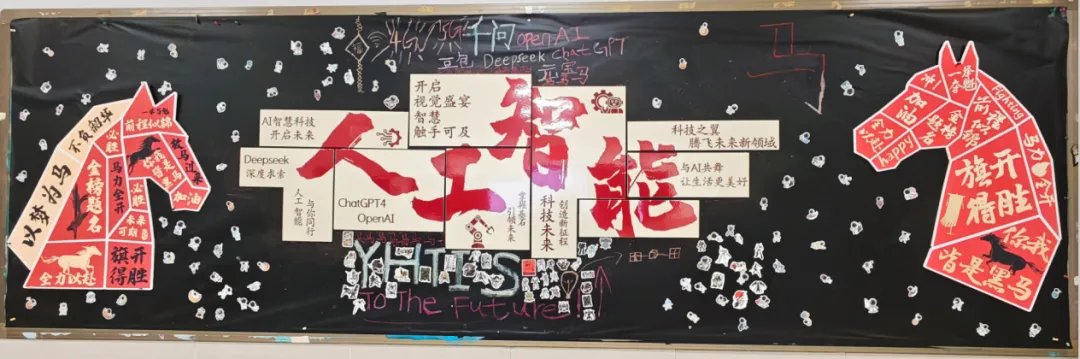 4G 5G 千问 OpenAI
豆包 Deepseek ChatGPT
元宝
马
AI智慧科技
开启未来
开启
视觉盛宴
智慧
触手可及
科技之翼
腾飞未来新领域
Deepseek
深度求索
与AI共舞
让生活更美好
人工智能
人工智能
与你同行
ChatGPT4
OpenAI
引领未来
科技未来
创造新征程
YHTIS
To The Future!
以梦为马
不负韶华
前程似锦
必胜
金榜题名
马力全开
必胜
未来可期
放马过来
加油
全力以赴
旗开得胜
冲!
加油
全力以赴
happy
金榜题名
前程似锦
Fighting
马力全开
旗开得胜
你我皆是黑马